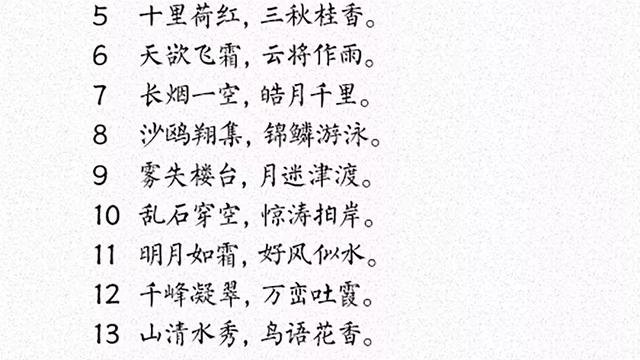 5 十里荷红，三秋桂香。
6 天欲飞霜，云将作雨。
7 长烟一空，皓月千里。
8 沙鸥翔集，锦鳞游泳。
9 雾失楼台，月迷津渡。
10 乱石穿空，惊涛拍岸。
11 明月如霜，好风似水。
12 千峰凝翠，万峦吐霞。
13 山清水秀，鸟语花香。